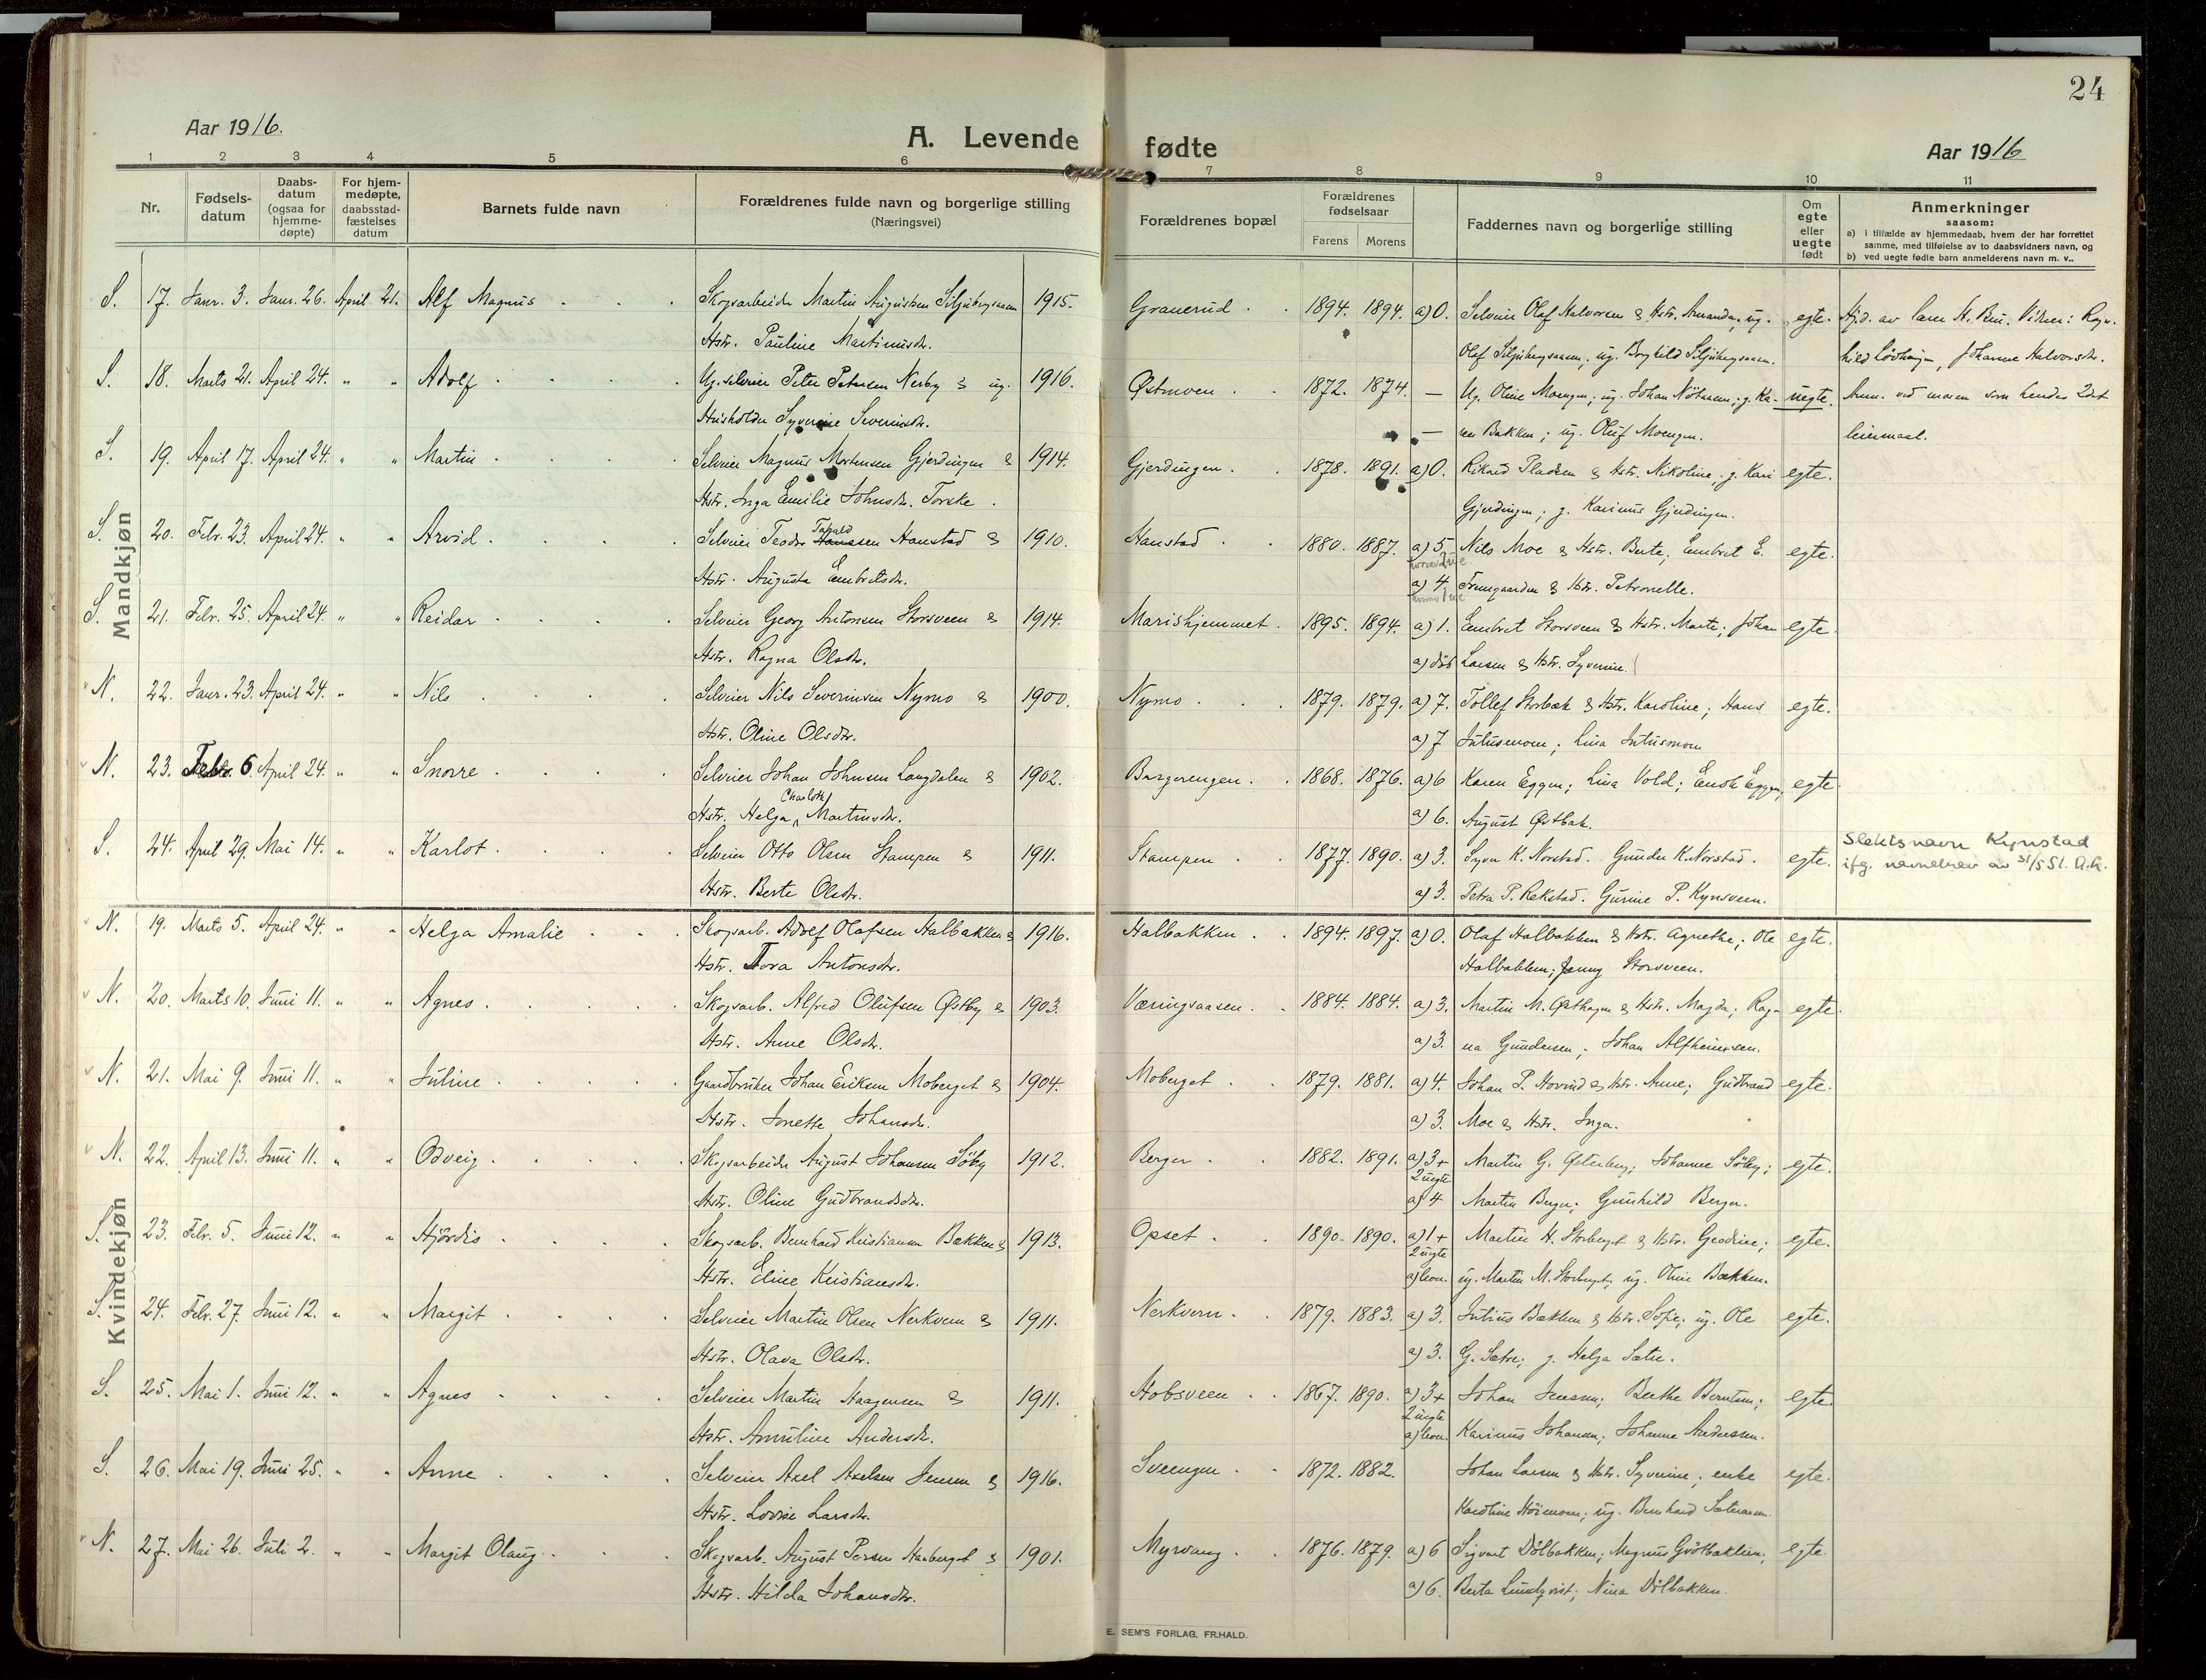 24
Aar 1916.
A. Levende fødte
Aar 1916
1 2 3 4 5 6 7 8 9 10 11
Nr.
Fødsels-
datum
Daabs-
datum
(ogsaa for
hjemme-
døpte)
For hjem-
medøpte,
daabsstad-
fæstelses
datum
Barnets fulde navn
Forældrenes fulde navn og borgerlige stilling
(Næringsvei)
Forældrenes bopæl
Forældrenes
fødselsaar
Farens Morens
Faddernes navn og borgerlige stilling
Om
egte
eller
uegte
født
Anmerkninger
saasom:
a) i tilfælde av hjemmedaab, hvem der har forrettet
samme, med tilføielse av to daabsvidners navn, og
b) ved uegte fødte barn anmelderens navn m. v..
Mandkjøn
S. 17. Janr. 3. Janr. 26. April 21. Alf Magnus Skogsarbeider Martin Augustsen Siljubergsaasen 1915. Granerud 1894. 1894. a) 0. Selveier Olaf Halvorsen & Hstr. Amanda, ug. egte. Hj.d. av Vidner: Ragn-
Hstr. Pauline Martinusdtr. Olaf Siljubergsaasen, ug. Borghild Siljubergsaasen. hild Løvhaugen, Johanne Halvorsdtr.
S. 18. Marts 21. April 24. " " Adolf Ug. selveier Peter Petersen Nerby & ug. 1916. Østmoen 1872. 1874. — Ug. Oline Moengen; ug. Johan g. Ka- uegte. Anm. ved moren som hendes 2det
Husholder Syverine Severinsdtr. — ren Bakken; ug. Oluf Moengen. leiermaal.
S. 19. April 17. April 24. " " Martin Selveier Magnus Mortensen Gjerdingen & 1914. Gjerdingen 1878. 1891. a) 0. Rikard Pladsen & Hstr. Nikoline; g. Kari egte.
Hstr. Inga Emilie Johnsdtr. Torske. Gjerdingen; g. Karinus Gjerdingen.
S. 20. Febr. 23. April 24. " " Arvid Selveier Teodor Hanstad & 1910. Hanstad 1880. 1887. a) 5 Nils Moe & Hstr. Berte, Embret E. egte.
Hstr. Augusta Embretsdtr. a) 4 Fremgaarden & Hstr. Petronelle.
S. 21. Febr. 25. April 24. " " Reidar Selveier Georg Antonsen Storsveen & 1914. Marishjemmet 1895. 1894. a) 1. Embret Storsveen & Hstr. Marte; Johan egte.
Hstr. Ragna Olsdtr. a) død Larsen & Hstr. Syverine.
N. 22. Janr. 23. April 24. " " Nils Selveier Nils Severinsen Nymo & 1900. Nymo 1879. 1879. a) 7. Tollef Storbæk & Hstr. Karoline; Hans egte.
Hstr. Oline Olsdtr. a) 7 Julusmoen; Lina Julusmoen
N. 23. Febr. 6. April 24. " " Snorre Selveier Johan Johnsen Langdalen & 1902. 1868. 1876. a) 6 Karen Eggen; Lina Vold; Eggen, egte.
Charlotte
Hstr. Helga Martinsdtr. a) 6. August Østbak.
S. 24. April 29. Mai 14. " " Karlot Selveier Otto Olsen Stampen & 1911. Stampen 1877. 1890. a) 3. Syver K. Norstad. Gunder K. Norstad. egte. Slektsnavn Kynstad
ifg. navnebrev av 31/5 51. A.K.
Hstr. Berte Olsdtr. a) 3. Petra P. Rekstad. Gurine P. Kynsveen.
Kvindekjøn
N. 19. Marts 5. April 24. " " Helga Amalie Skogsarb. Adolf Olafsen Halbakken & 1916. Halbakken 1894. 1897. a) 0. Olaf Halbakken & Hstr. Agnethe; Ole egte.
Hstr. Tora Antonsdtr. Halbakken; Jenny Storsveen.
N. 20. Marts 10. Juni 11. " " Agnes Skogsarb. Alfred Olufsen Østby & 1903. Væringsaasen 1884. 1884. a) 3. Martin M. Østhagen & Hstr. Magda; Rag- egte.
Hstr. Anne Olsdtr. a) 3. na Gundersen; Johan Alfheimsen.
N. 21. Mai 9. Juni 11. " " Juline Gaardbruker Johan Eriksen Moberget & 1904. Moberget 1879. 1881. a) 4. Johan P. Hovind & Hstr. Anne; Gudbrand egte.
Hstr. Jonette Johansdtr. a) 3. Moe & Hstr. Inga.
N. 22. April 13. Juni 11. " " Odveig Skogsarbeider August Johansen Söby 1912. Berger 1882. 1891. a) 3+ Martin G. Østenberg; Johanne Söby; egte.
2 uegte
Hstr. Oline Gudbrandsdtr. a) 4 Martin Berger; Gunhild Berger.
S. 23. Febr. 5. Juni 12. " " Hjördis Skogsarb. Bernhard Kristiansen Bækken & 1913. Opset 1890. 1890. a) 1+ Martin H. Storberget & Hstr. Geodine; egte.
2 uegte
Hstr. Eline Kristiansdtr. a) leve. ug. Martin M. Storberget; ug. Oline Bækken.
S. 24. Febr. 27. Juni 12. " " Margit Selveier Martin Olsen Nerkvern & 1911. Nerkvern 1879. 1883. a) 3. Julius Bækken & Hstr. Sofie; ug. Ole egte.
Hstr. Olava Olsdtr. a) 3. G. Sætre; g. Helga Sæter.
S. 25. Mai 1. Juni 12. " " Agnes Selveier Martin Haagensen & 1911. Hobsveen 1867. 1890. a) 3+ Johan Jensen; Berthe Berntsen; egte.
2 uegte
Hstr. Anuline Andersdtr. a) leve. Karinus Johansen; Johanne Andersen.
S. 26. Mai 19. Juni 25. " " Anne Selveier Axel Axelsen Jensen & 1916. Sveengen 1872. 1882. Johan Larsen & Hstr. Syverine; enke egte.
Hstr. Lovise Larsdtr. Karoline Höimoen; ug. Bernhard Sæteraasen.
N. 27. Mai 26. Juli 2. " " Margit Olaug Skogsarb. August Persen Harberget & 1901. Myrvang 1876. 1879. a) 6 Sigvart Dölbakken; Magnus egte.
Hstr. Hilda Johansdtr. a) 6. Berta Lundqvist; Nina Dölbakken.
E. SEM'S FORLAG, FR.HALD.